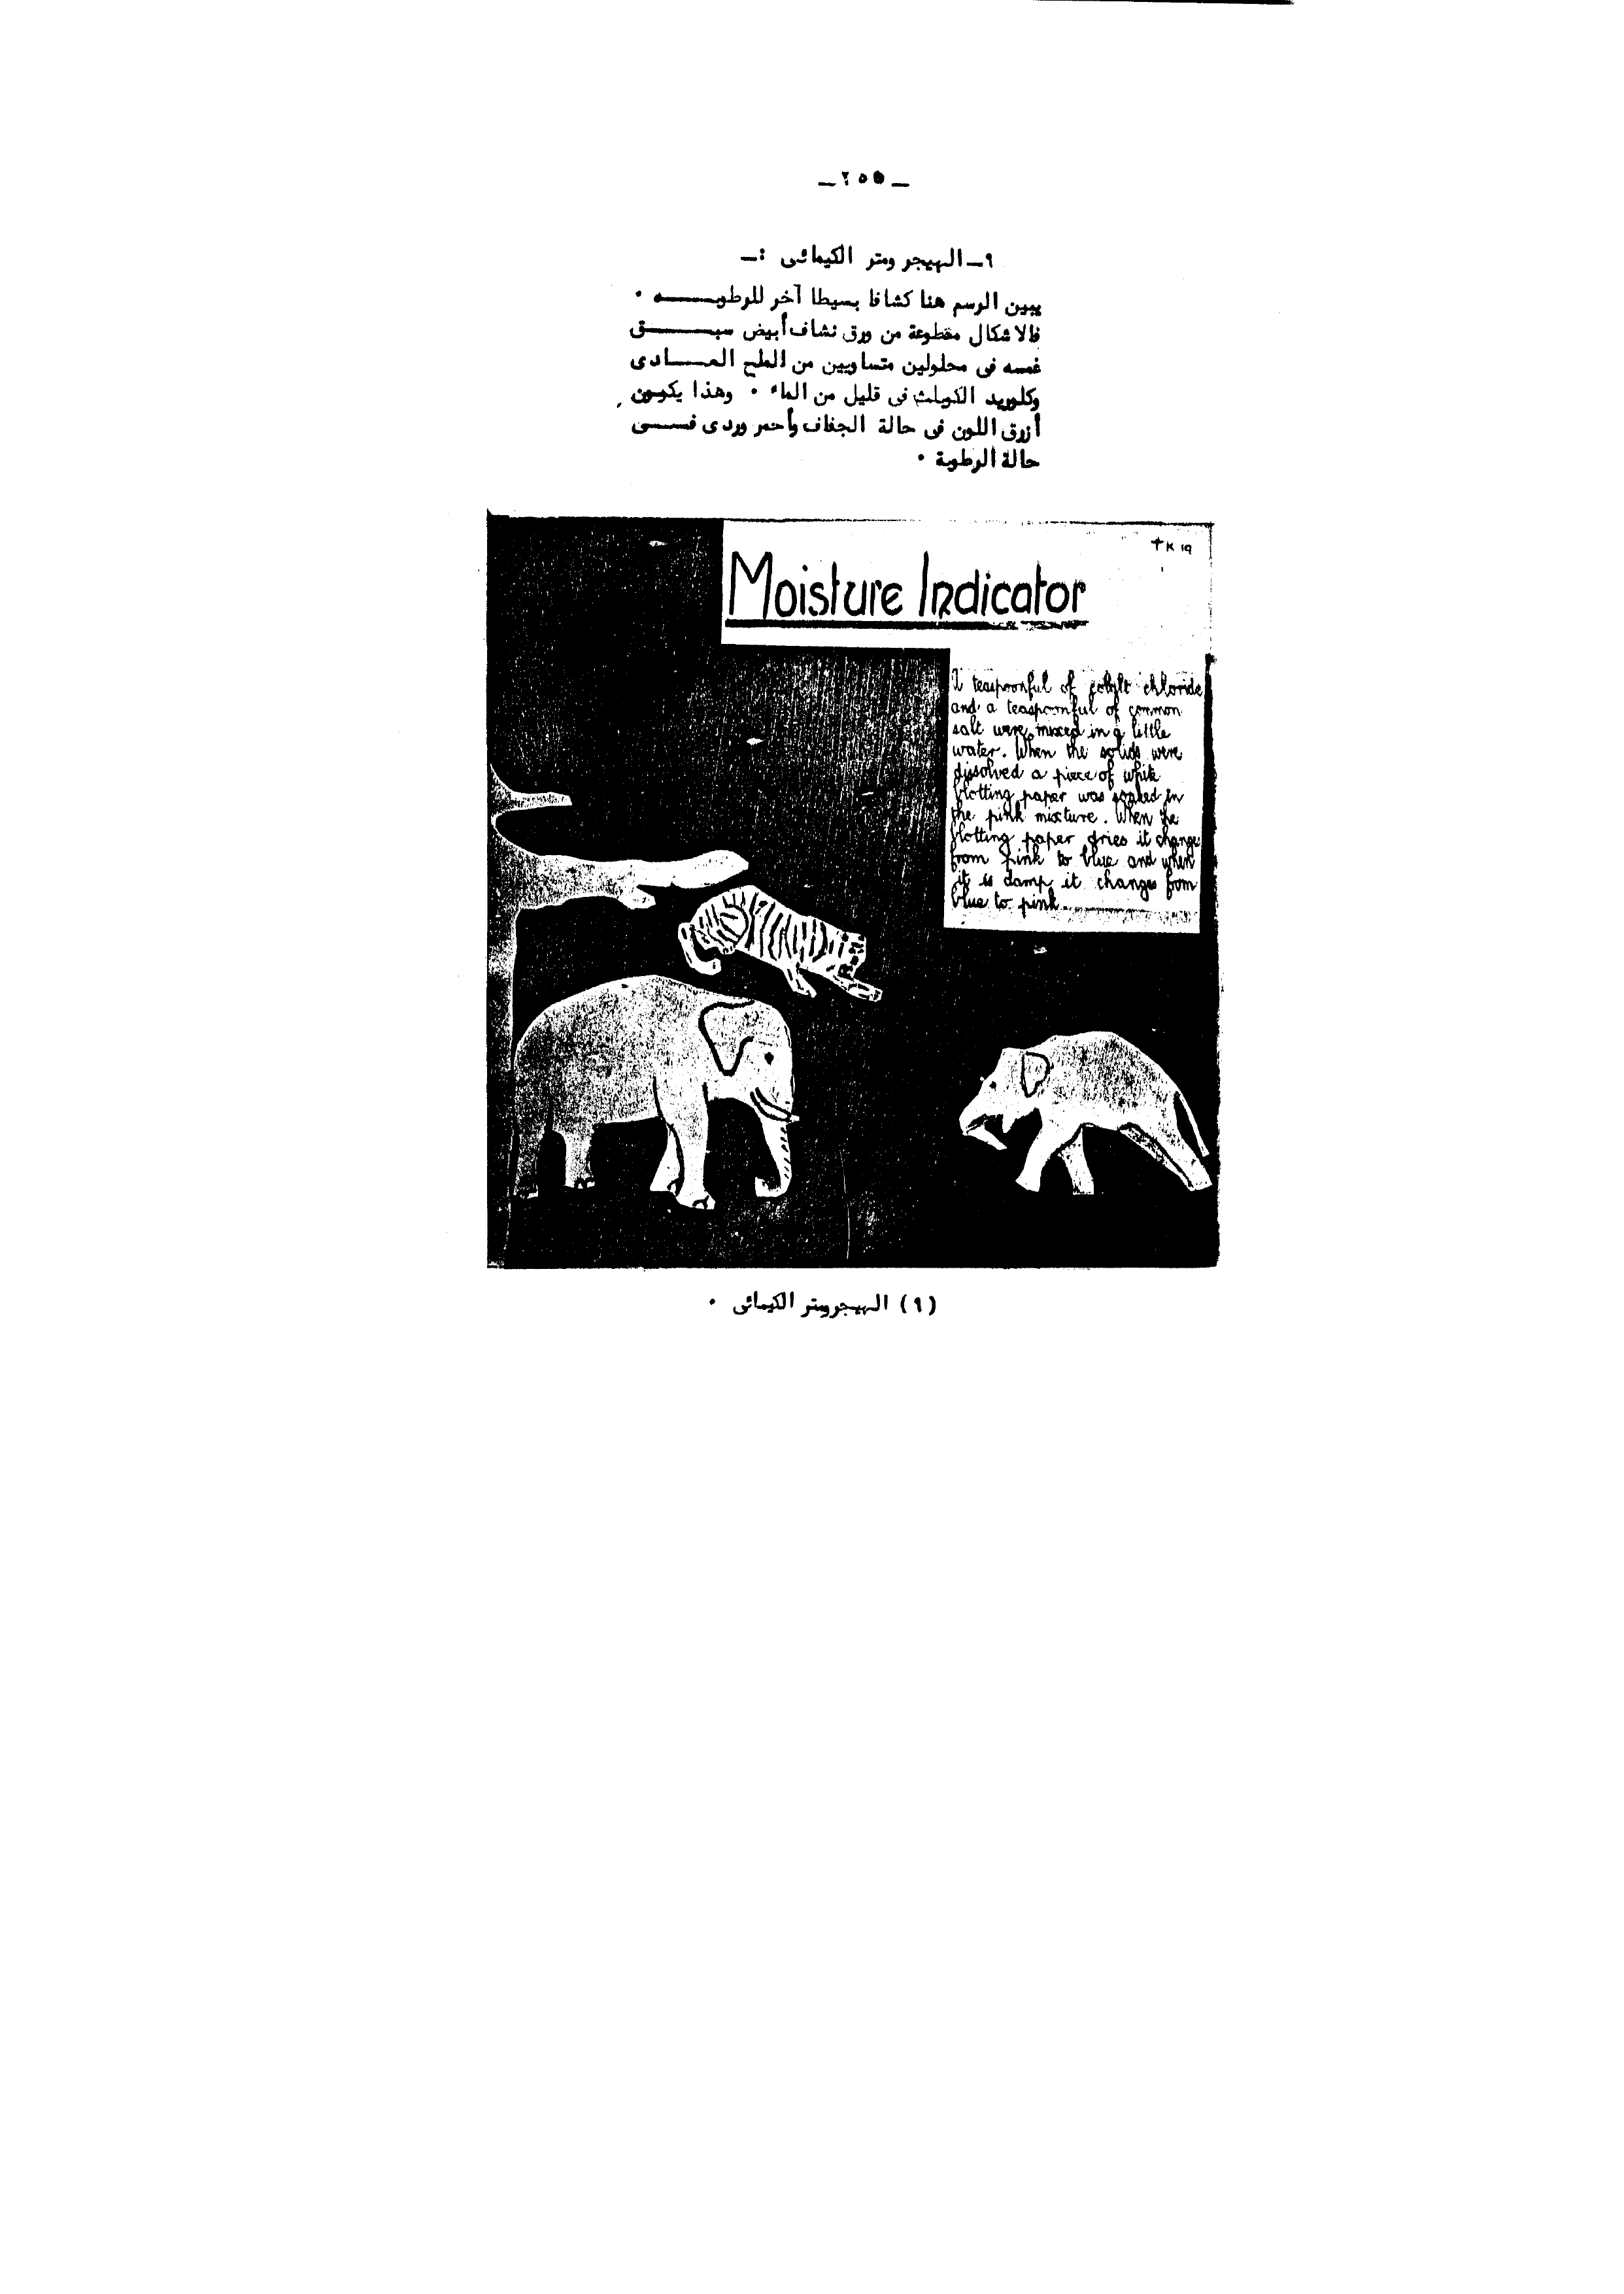 ـ ٢٥٥ ـ
٩ـ الهيجرومتر الكيمائى :ـ
يبين الرسم هنا كشافا بسيطا آخر للرطوبـــــه ٠
فالاشكال مقطوعة من ورق نشاف أبيض سبـــــق
غمسه فى محلولين متساويين من الملح العـــادى
وكلوريد الكوبلت فى قليل من الماء ٠ وهذا يكـون
أزرق اللون فى حالة الجفاف وأحمر وردى فـــى
حالة الرطوبة ٠
K 19
Moisture Indicator
teaspoonful of cobalt chloride
and a teaspoonful of common
salt were mixed in a little
water. When the solids were
dissolved a piece of white
blotting paper was soaked in
the pink mixture. When the
blotting paper dries it change
from pink to blue and when
it is damp it changes from
blue to pink
(٩) الهيجرومتر الكيمائى ٠